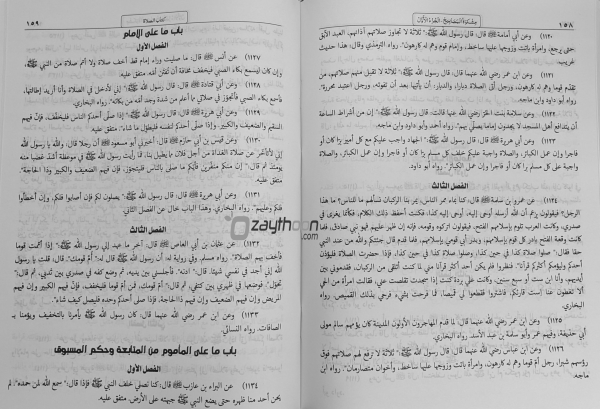 ١٥٨ مشكوة المصابيح - الجزء الأول
(١١٢٠) عن أبي أمامة ﷺ قال: قال رسول الله ﷺ: "ثلاثة لا تجاوز صلاتهم آذانهم: العبد الآبق
حتى يرجع، وامرأة باتت وزوجها عليها ساخط، وإمام قوم وهم له كارهون". رواه الترمذي وقال: هذا حديث
غريب.
(١١٢٣) وعن ابن عمر رضي الله عنهما قال: قال رسول الله ﷺ: "ثلاثة لا تقبل منهم صلاتهم: من
تقدم قوما وهم له كارهون، ورجل أتى الصلاة دبارا، والدبار: أن يأتيها بعد أن تفوته، ورجل اعتبد محررة".
رواه أبو داود وابن ماجه.
وعن سلامة بنت الحر رضي الله عنها قالت: قال رسول الله ﷺ: "إن من أشراط الساعة
أن يتدافع أهل المسجد لا يجدون إماما يصلي بهم". رواه أحمد وأبو داود وابن ماجه.
وعن أبي هريرة ﷺ قال: قال رسول الله ﷺ: "الجهاد واجب عليكم مع كل أمير برا كان أو
فاجرا وإن عمل الكبائر، والصلاة واجبة عليكم خلف كل مسلم برا كان أو فاجرا وإن عمل الكبائر، والصلاة
واجبة على كل مسلم برا كان أو فاجرا وإن عمل الكبائر". رواه أبو داود.
الفصل الثالث
عن عمرو بن سلمة ﷺ قال: كنا بماء ممر الناس، يمر بنا الركبان نسألهم ما للناس؟ ما هذا
الرجل؟ فيقولون: يزعم أن الله أرسله أوحى إليه، أوحى إليه كذا، فكنت أحفظ ذلك الكلام، فكأنما يغرى في
صدري، وكانت العرب تلوم بإسلامهم الفتح، فيقولون: اتركوه وقومه، فإنه إن ظهر عليهم فهو نبي صادق، فلما
كانت وقعة الفتح بادر كل قوم بإسلامهم، وبدر أبي قومي بإسلامهم، فلما قدم قال: جئتكم والله من عند النبي
حقا، فقال: "صلوا صلاة كذا في حين كذا، وصلوا صلاة كذا في حين كذا، فإذا حضرت الصلاة فليؤذن
أحدكم وليؤمكم أكثركم قرآنا". فنظروا فلم يكن أحد أكثر قرآنا مني لما كنت أتلقى من الركبان، فقدموني بين
أيديهم، وأنا ابن ست أو سبع سنين، وكانت علي بردة كنت إذا سجدت تقلصت عني، فقالت امرأة من الحي
ألا تغطون عنا است قارئكم، فاشتروا فقطعوا لي قميصا، فما فرحت بشيء فرحي بذلك القميص. رواه
البخاري.
(١١٢٥) وعن ابن عمر رضي الله عنهما قال: لما قدم المهاجرون الأولون المدينة كان يؤمهم سالم مولى
أبي حذيفة، وفيهم عمر وأبو سلمة بن عبد الأسد. رواه البخاري.
(١١٢٦) وعن ابن عباس رضي الله عنهما قال: قال رسول الله ﷺ: "ثلاثة لا ترفع لهم صلاتهم فوق
رؤسهم شبرا، رجل أم قوما وهم له كارهون، وامرأة باتت وزوجها عليها ساخط، وأخوان متصارمان". رواه ابن
ماجه.
كتاب الصلاة ١٥٩
باب ما على الإمام
الفصل الأول
(١١٢٧) عن أنس ﷺ قال: ما صليت وراء إمام قط أخف صلاة ولا أتم صلاة من النبي ﷺ،
وإن كان ليسمع بكاء الصبي فيخفف مخافة أن تفتن أمه. متفق عليه.
وعن أبي قتادة ﷺ قال: قال رسول الله ﷺ: "إني لأدخل في الصلاة وأنا أريد إطالتها،
فأسمع بكاء الصبي فأتجوز في صلاتي مما أعلم من شدة وجد أمه من بكائه". رواه البخاري.
وعن أبي هريرة ﷺ قال: قال رسول الله ﷺ: "إذا صلى أحدكم للناس فليخفف، فإن فيهم
السقيم والضعيف والكبير، وإذا صلى أحدكم لنفسه فليطول ما شاء". متفق عليه.
وعن قيس بن أبي حازم ﷺ قال: أخبرني أبو مسعود أن رجلا قال: والله يا رسول الله
إني لأتأخر عن صلاة الغداة من أجل فلان مما يطيل بنا، فما رأيت رسول الله ﷺ في موعظة أشد غضبا منه
يومئذ، ثم قال: "إن منكم منفرين، فأيكم ما صلى بالناس فليتجوز، فإن فيهم الضعيف والكبير وذا الحاجة".
متفق عليه.
(١١٣١) وعن أبي هريرة ﷺ قال: قال رسول الله ﷺ: "يصلون لكم فإن أصابوا فلكم، وإن أخطأوا
فلكم وعليهم". رواه البخاري، وهذا الباب خال عن الفصل الثاني.
الفصل الثالث
(١١٣٢) عن عثمان بن أبي العاص ﷺ قال: آخر ما عهد إلي رسول الله ﷺ: "إذا أممت قوما
فأخف بهم الصلاة". رواه مسلم. وفي رواية له: أن رسول الله ﷺ قال له: "أم قومك". قال: قلت: يا رسول
الله إني أجد في نفسي شيئا. قال: "ادنه". فأجلسني بين يديه، ثم وضع كفه في صدري بين ثديي، ثم قال:
"تحول". فوضعها في ظهري بين كتفي، ثم قال: "أم قومك، فمن أم قوما فليخفف، فإن فيهم الكبير، وإن فيهم
المريض وإن فيهم الضعيف وإن فيهم ذا الحاجة، فإذا صلى أحدكم وحده فليصل كيف شاء".
(١١٣٣) وعن ابن عمر رضي الله عنهما قال: كان رسول الله ﷺ يأمرنا بالتخفيف ويؤمنا بـ
الصافات. رواه النسائي.
باب ما على المأموم من المتابعة وحكم المسبوق
الفصل الأول
(١١٣٤) عن البراء بن عازب ﷺ قال: كنا نصلي خلف النبي ﷺ فإذا قال: "سمع الله لمن حمده". لم
يحن أحد منا ظهره حتى يضع النبي ﷺ جبهته على الأرض. متفق عليه.
zaythoon.com